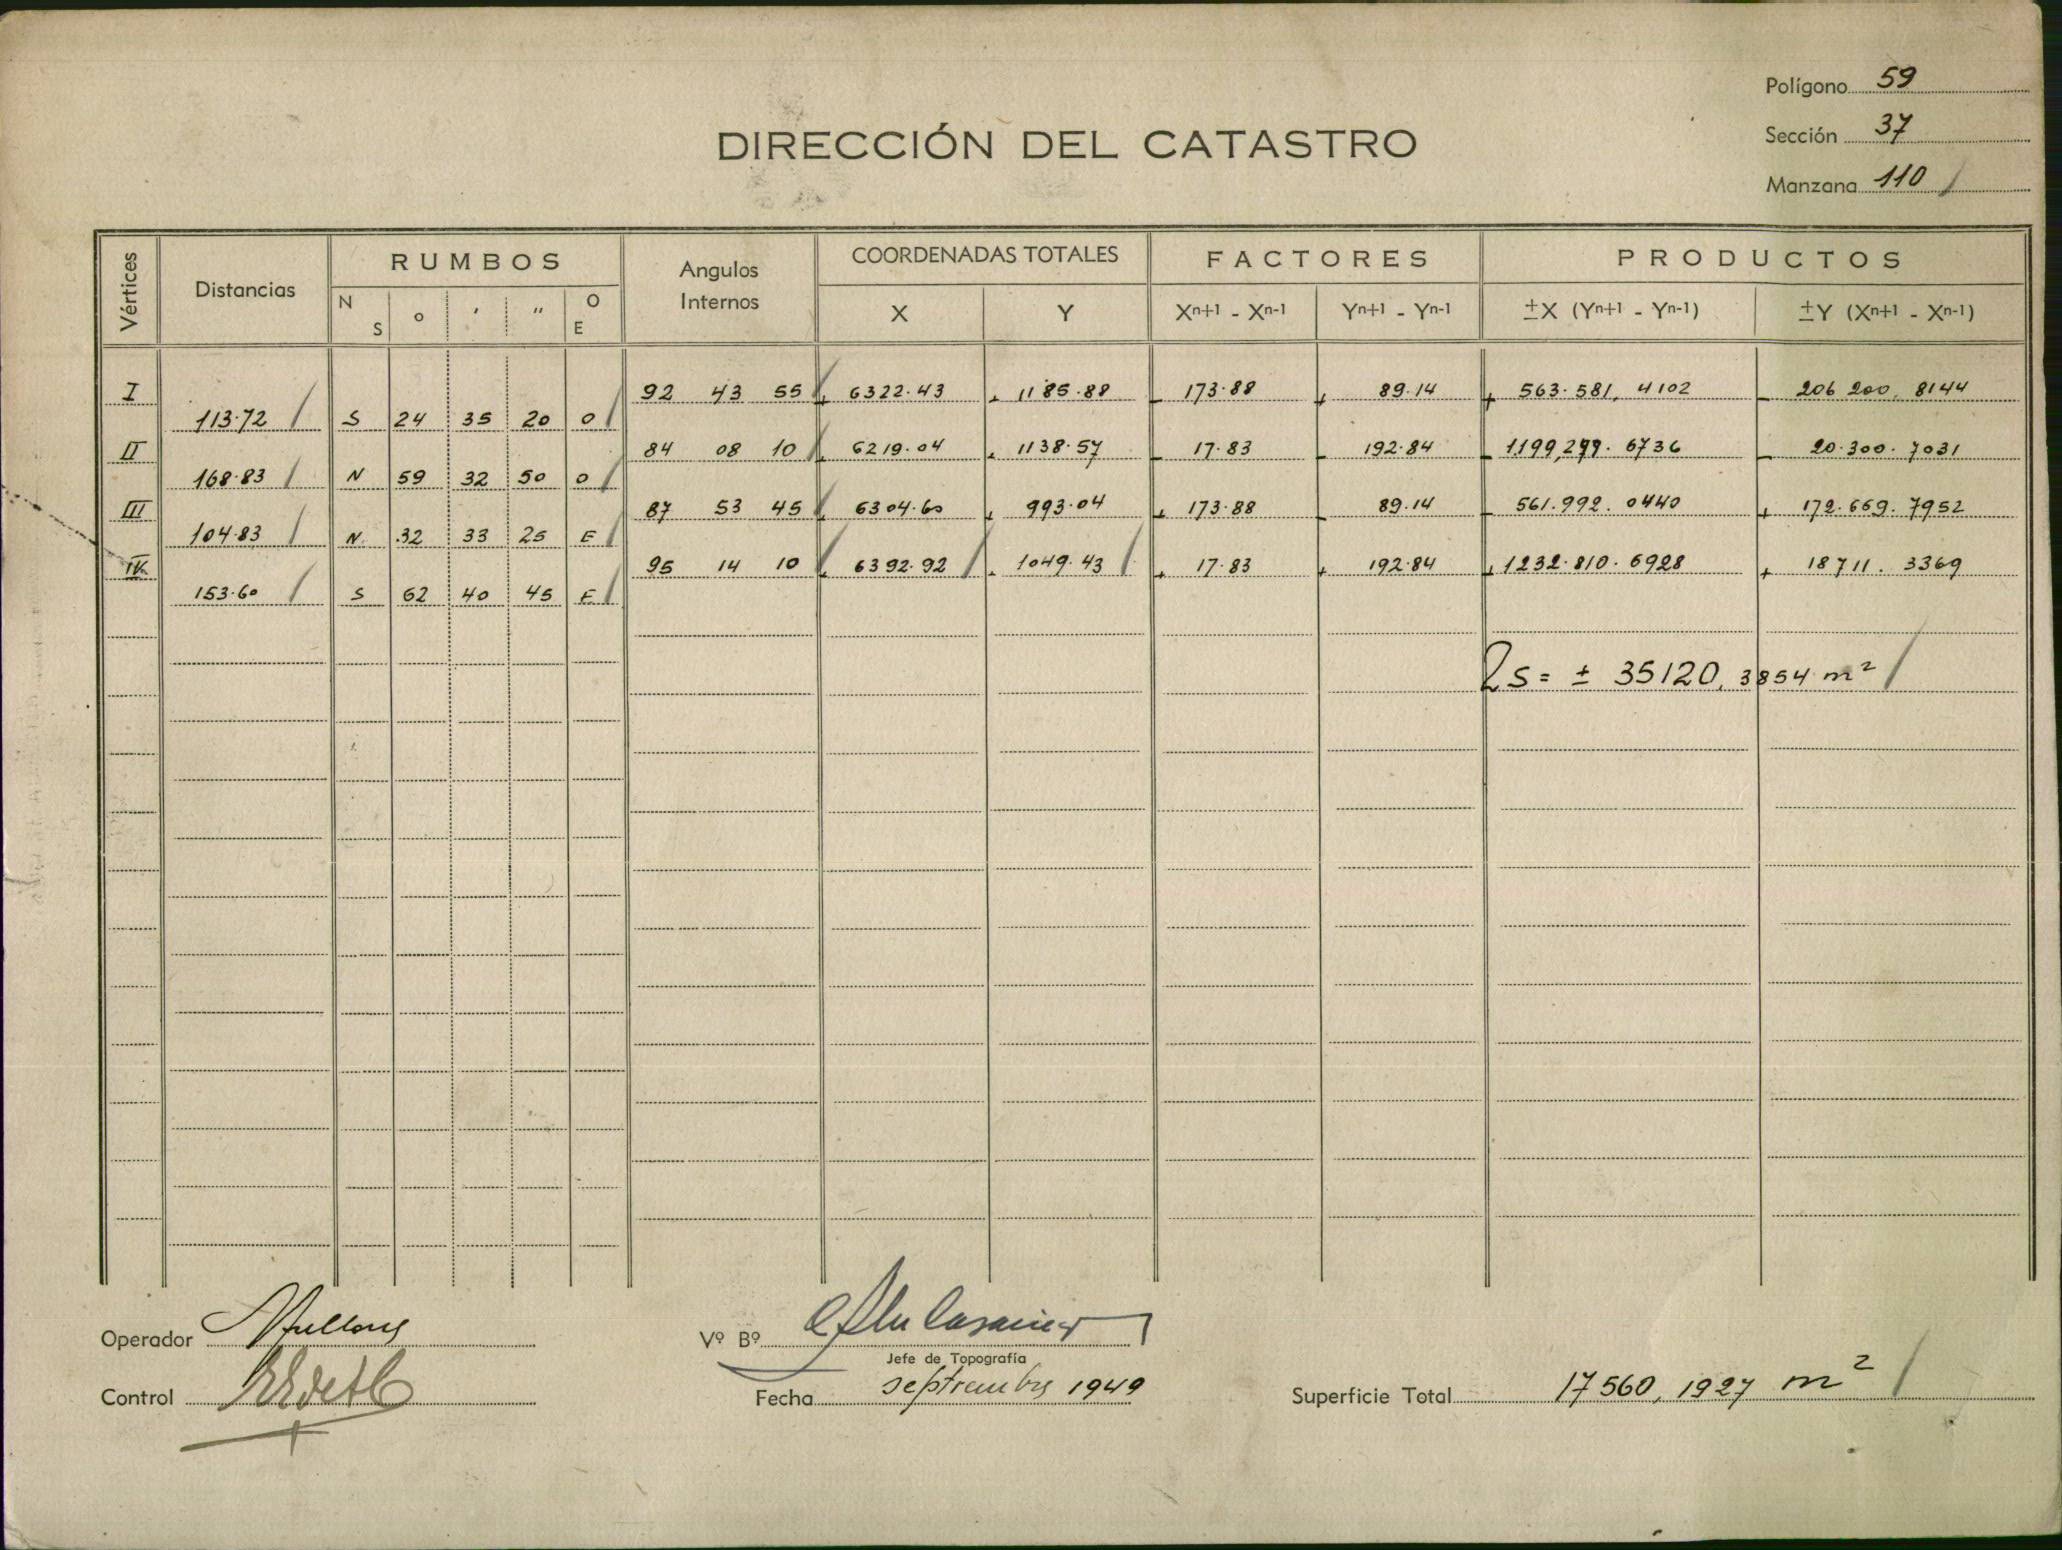 Polígono 59
DIRECCIÓN DEL CATASTRO
Sección 37
Manzana 110
Vértices Distancias RUMBOS Angulos Internos COORDENADAS TOTALES FACTORES PRODUCTOS
N S ° ' " O E X Y Xn+1 - Xn-1 Yn+1 - Yn-1 ±X (Yn+1 - Yn-1) ±Y (Xn+1 - Xn-1)
I 92 43 55 + 6322.43 + 1185.88 - 173.88 + 89.14 + 563.581,4102 - 206 200,8144
113.72 S 24 35 20 O
II 84 08 10 + 6219.04 + 1138.57 - 17.83 - 192.84 - 1199,279.6736 - 20.300.7031
168.83 N 59 32 50 O
III 87 53 45 + 6304.60 + 993.04 + 173.88 - 89.14 - 561.992.0440 + 172.669.7952
104.83 N 32 33 25 E
IV 95 14 10 + 6392.92 + 1049.43 + 17.83 + 192.84 + 1232.810.6928 + 18711.3369
153.60 S 62 40 45 E
2S = ± 35120,3854 m²
Operador
Vº Bº
Jefe de Topografía
Control
Fecha septiembre 1949
Superficie Total 17560,1927 m²